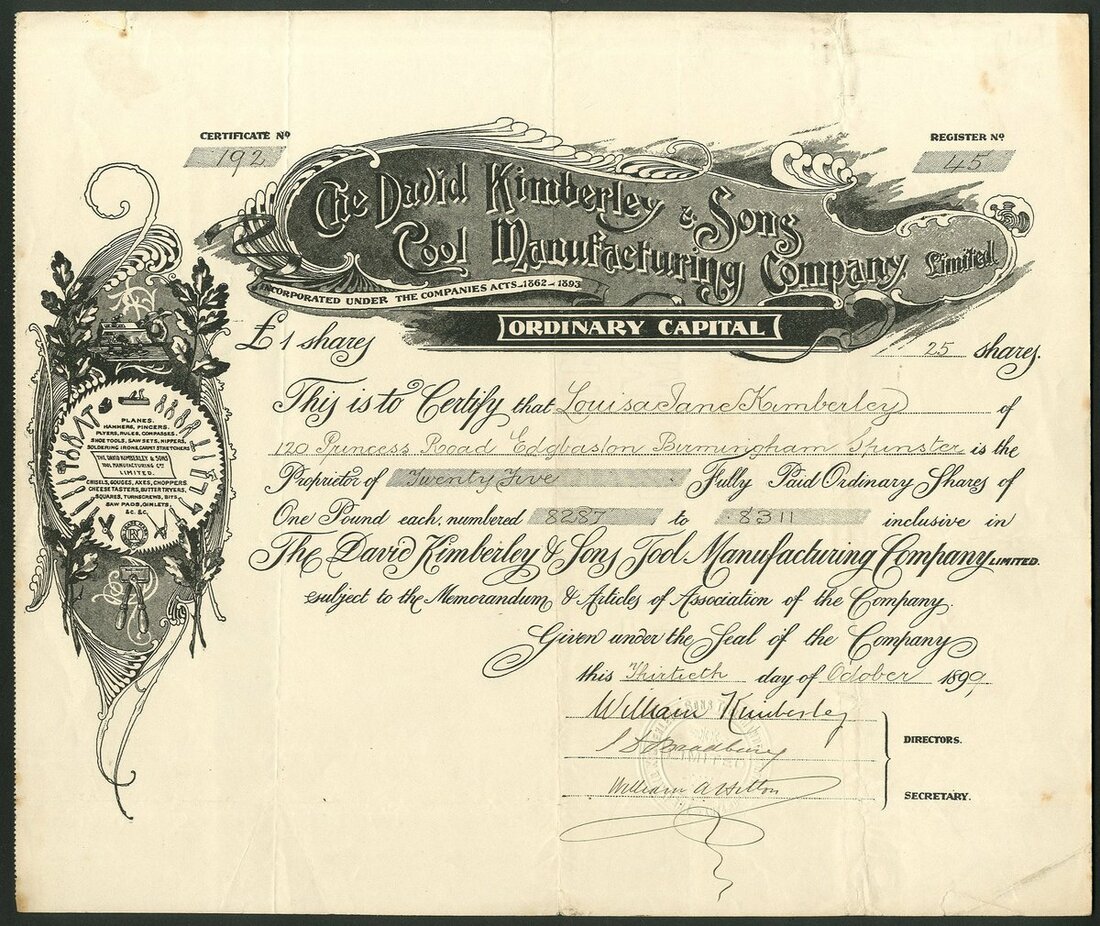 CERTIFICATE Nº
192
REGISTER Nº
45
The David Kimberley & Sons
Tool Manufacturing Company, Limited
INCORPORATED UNDER THE COMPANIES ACTS 1862-1893
ORDINARY CAPITAL
£1 shares
25 shares.
This is to Certify that Louisa Jane Kimberley of
120 Princess Road Edgbaston Birmingham Spinster is the
Proprietor of Twenty Five Fully Paid Ordinary Shares of
One Pound each, numbered 8287 to 8311 inclusive in
The David Kimberley & Sons Tool Manufacturing Company LIMITED.
subject to the Memorandum & Articles of Association of the Company.
Given under the Seal of the Company
this Thirtieth day of October 1899
William Kimberley
Bradbury
DIRECTORS.
William A Hilton
SECRETARY.
PLANES.
HAMMERS, PINCERS.
PLYERS, RULES, COMPASSES.
SHOE TOOLS, SAW SETS, NIPPERS.
SOLDERING IRONS, CARPET STRETCHERS
THE DAVID KIMBERLEY & SONS
TOOL MANUFACTURING COY
LIMITED.
CHISELS, GOUGES, AXES, CHOPPERS
CHEESE TASTERS, BUTTER TRYERS,
SQUARES, TURNSCREWS, BITS
SAW PADS, GIMLETS,
&C. &C.